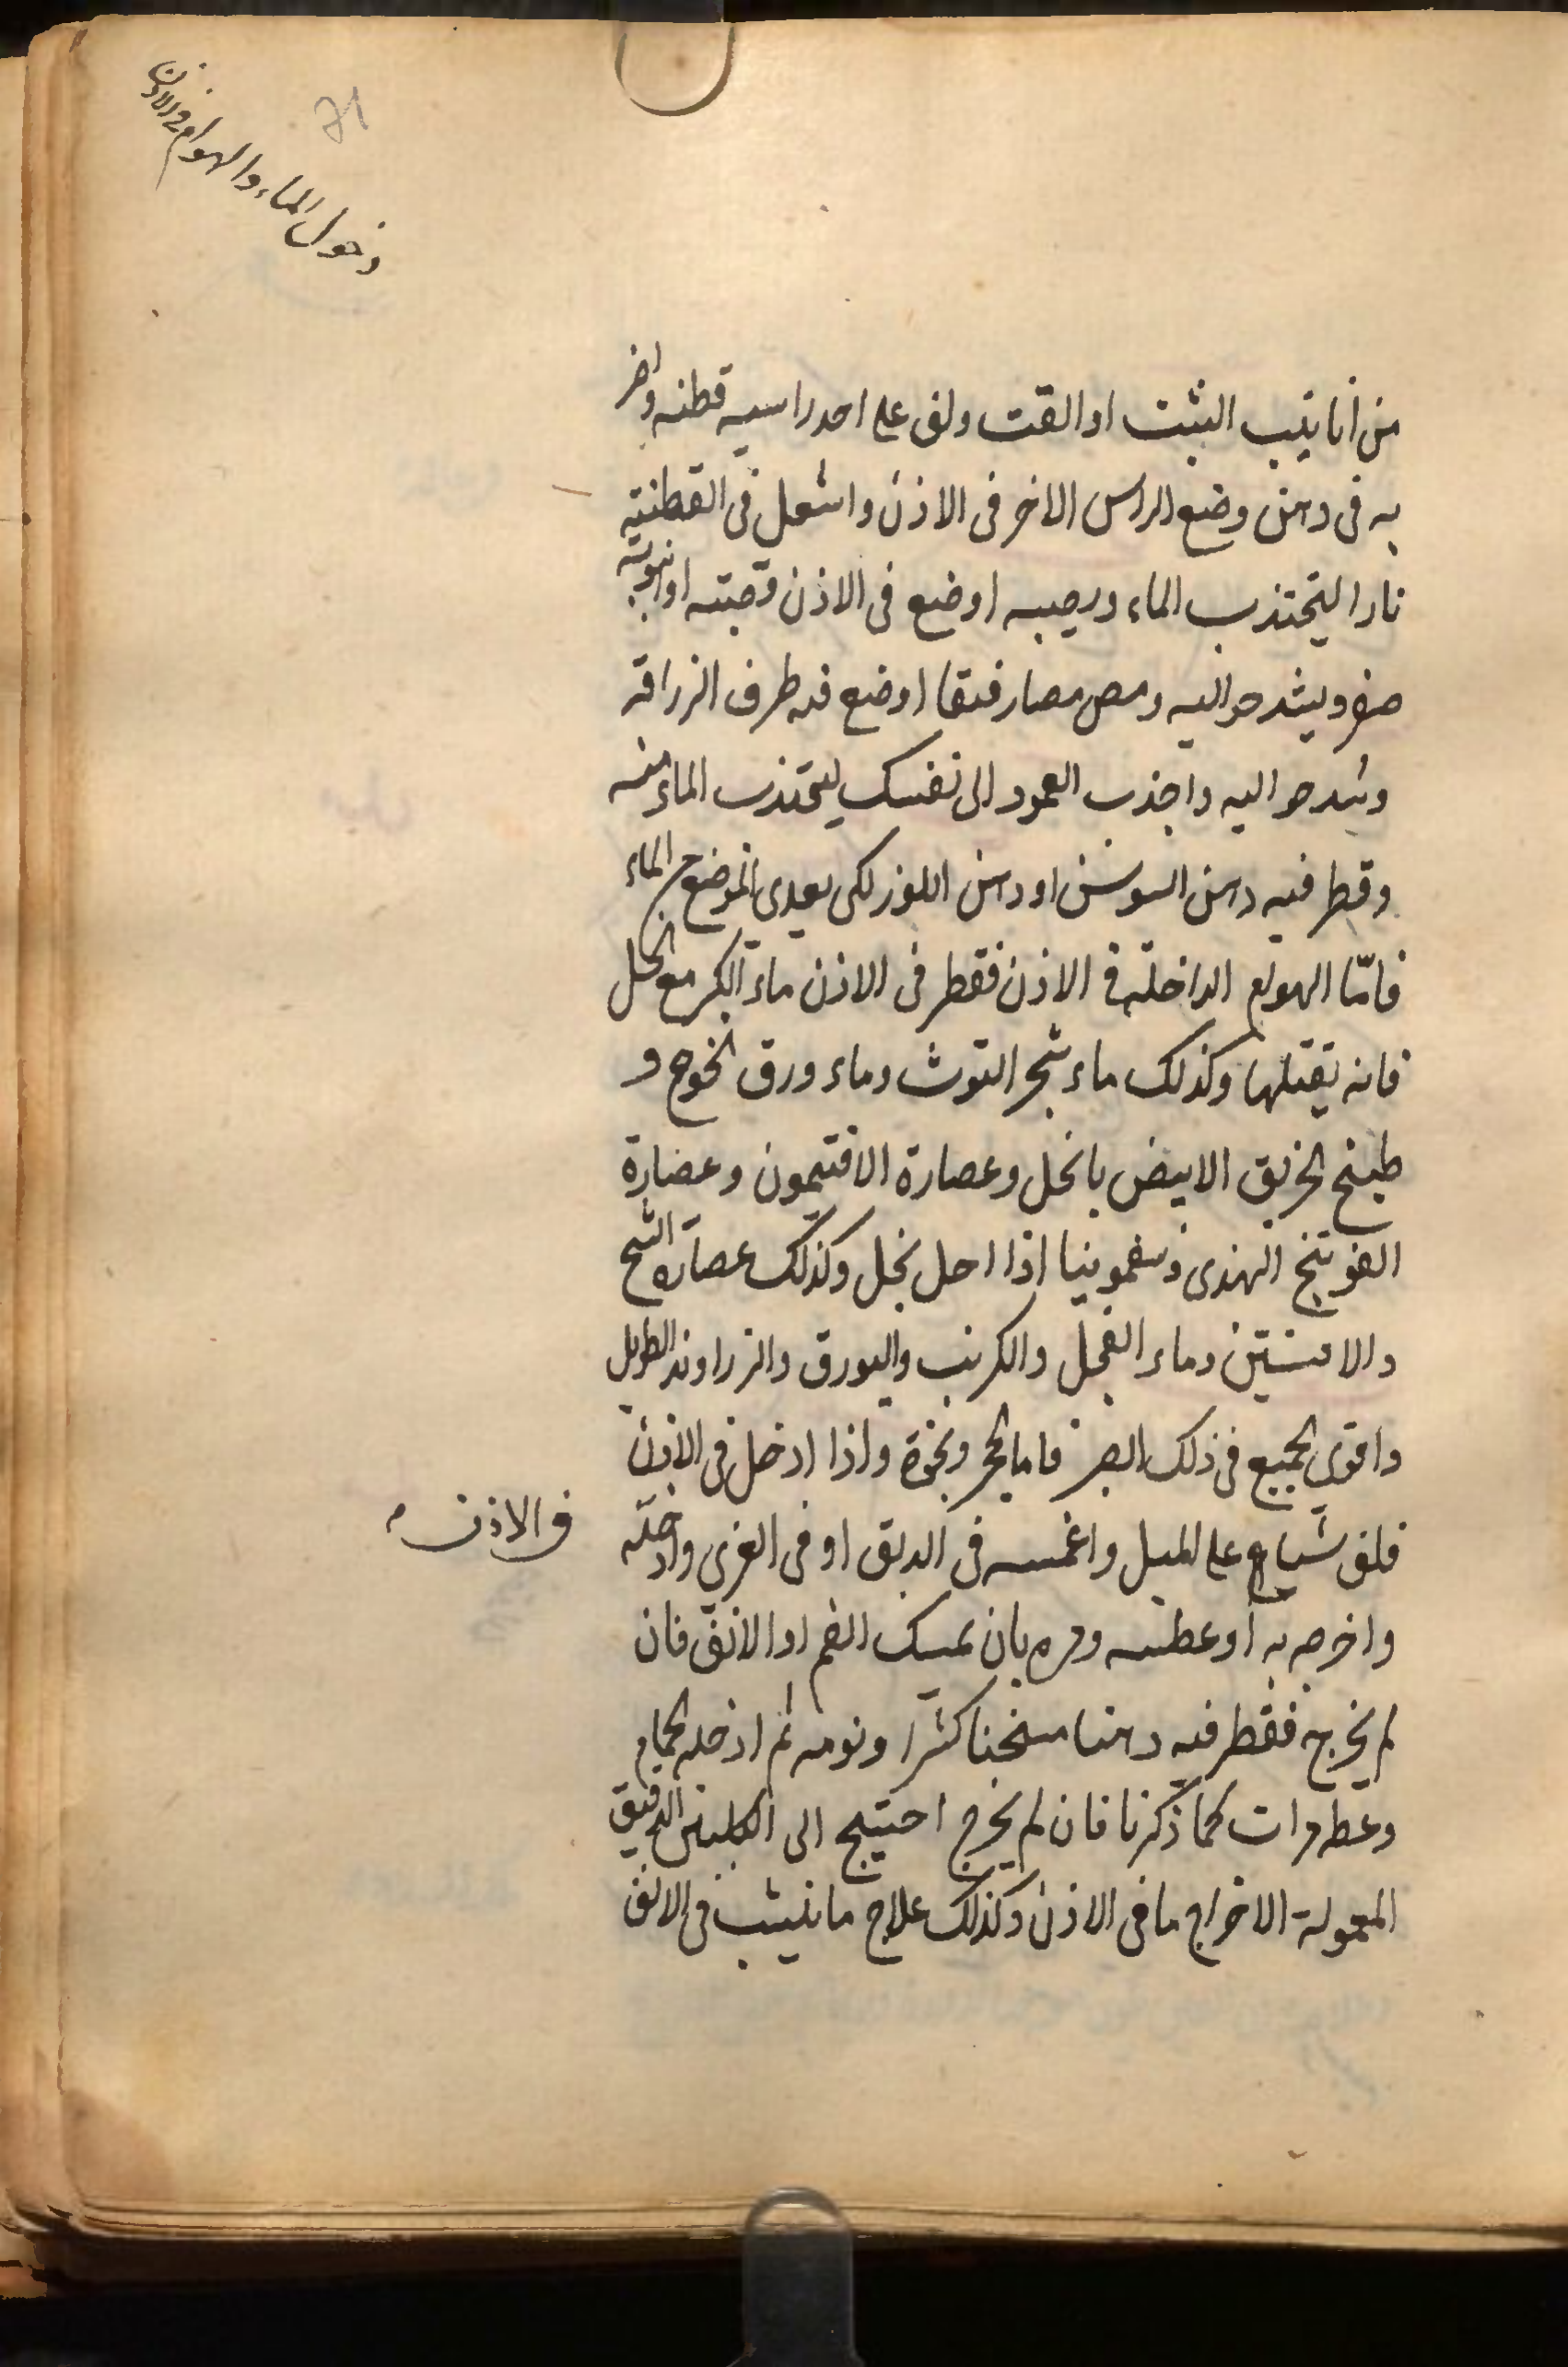 دخول الماء والهوام في الاذن
من انابيب الشبت او القت ولف على احد راسيه قطنه واضر
به فى دهن وضع الراس الاخر فى الاذن واشعل فى القطنة
نارا ليجتذب الماء ويصيبه او ضع فى الاذن قصبته او انبوبه
صفر ويشد حواليه ومص مصا رفيقا او ضع فيه طرف الزراقة
وشد حواليه واجذب العمود الى نفسك ليجتذب الماء منه
وقطر فيه دهن السوسن او دهن اللوز لكى يعدى الموضع الماء
فامّا الهوام الداخلة فى الاذن فقطر فى الاذن ماء الكبر مع الخل
فانه يقتلها وكذلك ماء شجر التوث وماء ورق الخوخ و
طبيخ الخربق الابيض بالخل وعصارة الافتيمون وعصارة
الفوتنج الهندى وسقمونيا اذا احل بخل وكذلك عصارة الشيح
والافسنتين وماء الفجل والكرنب والبورق والزراوند الطويل
واقوى الجميع فى ذلك الصبر فاما الحجر ونحوه واذا ادخل فى الاذن
فلف شيا على الميل واغمسه فى الدبق او فى الغرى وادخله
فى الاذن
واخرجه به او عطسه ومره بان يمسك الفم او الانف فان
لم يخرج فقطر فيه دهنا مسخنا كثيرا ونومه ثم ادخله الحمام
وعطه مرات كما ذكرنا فان لم يخرج احتيج الى الكلبتين الدقيق
المعمولة الاخراج ما فى الاذن وكذلك علاج ما ينشب فى الانف